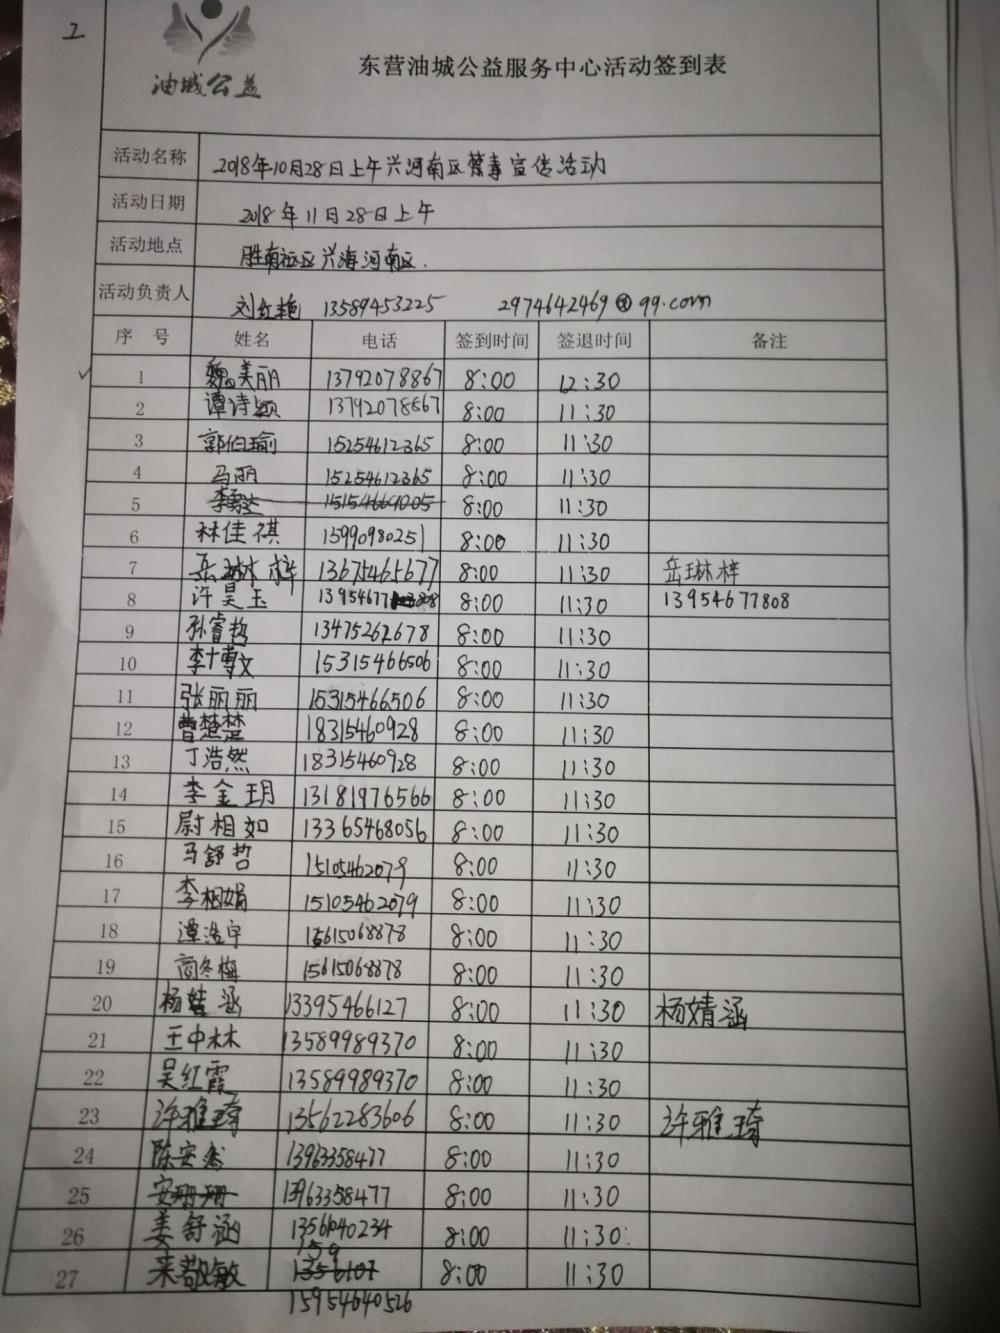 2
油城公益
东营油城公益服务中心活动签到表
活动名称 2018年10月28日上午兴河南区禁毒宣传活动
活动日期 2018年11月28日上午
活动地点 胜南社区兴海河南区.
活动负责人 刘红艳 13589453225 2974642469@qq.com
序号 姓名 电话 签到时间 签退时间 备注
1 魏美丽 13792078867 8:00 12:30
2 谭诗颖 13792078867 8:00 11:30
3 郭伯瑜 15254612365 8:00 11:30
4 马丽 15254612365 8:00 11:30
5 15154669005 8:00 11:30
6 林佳祺 15990980251 8:00 11:30
7 岳琳梓 13675465677 8:00 11:30 岳琳梓
8 许昊玉 13954677808 8:00 11:30 13954677808
9 孙睿哲 13475262678 8:00 11:30
10 李博文 15315466506 8:00 11:30
11 张丽丽 15315466506 8:00 11:30
12 曹楚楚 18315460928 8:00 11:30
13 丁浩然 18315460928 8:00 11:30
14 李金玥 13181976566 8:00 11:30
15 尉相如 13365468056 8:00 11:30
16 马舒哲 15105462079 8:00 11:30
17 李相娟 15105462079 8:00 11:30
18 谭浩宇 15615068878 8:00 11:30
19 商冬梅 15615068878 8:00 11:30
20 杨婧涵 13395466127 8:00 11:30 杨婧涵
21 王中林 13589989370 8:00 11:30
22 吴红霞 13589989370 8:00 11:30
23 许雅琦 13562283606 8:00 11:30 许雅琦
24 陈安然 13963358477 8:00 11:30
25 安珊珊 13963358477 8:00 11:30
26 姜舒涵 13561040234 8:00 11:30
159
27 来敬敏 1356107 8:00 11:30
15954640526